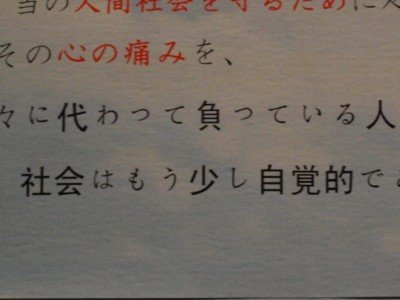 当の人間社会を守るために
その心の痛みを、
々に代わって負っている人
社会はもう少し自覚的で